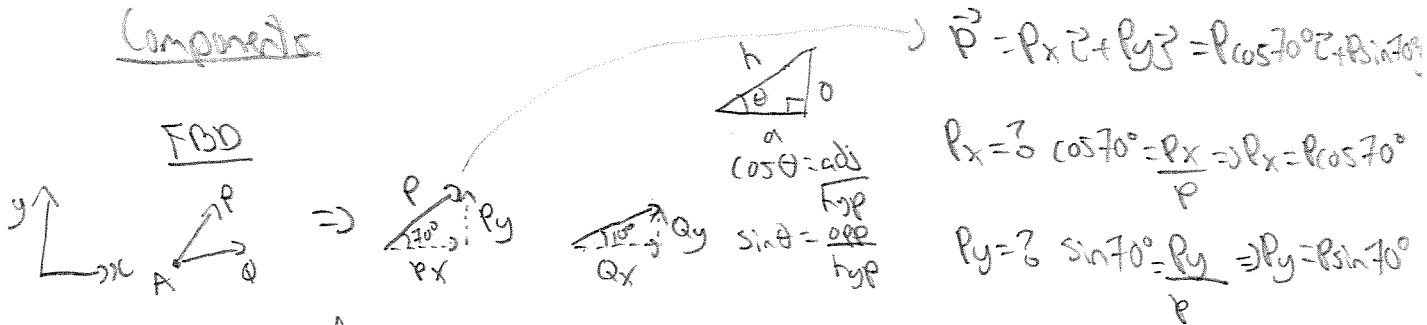 Components
FBD
y
x
A
P
Q
⇒
P
70°
Px
Py
10°
Qx
Qy
h
θ
o
a
cosθ = adj/hyp
sinθ = opp/hyp
⇒ P⃗ = Px i⃗ + Py j⃗ = Pcos70° i⃗ + Psin70°
Px = ? cos70° = Px/P ⇒ Px = Pcos70°
Py = ? sin70° = Py/P ⇒ Py = Psin70°